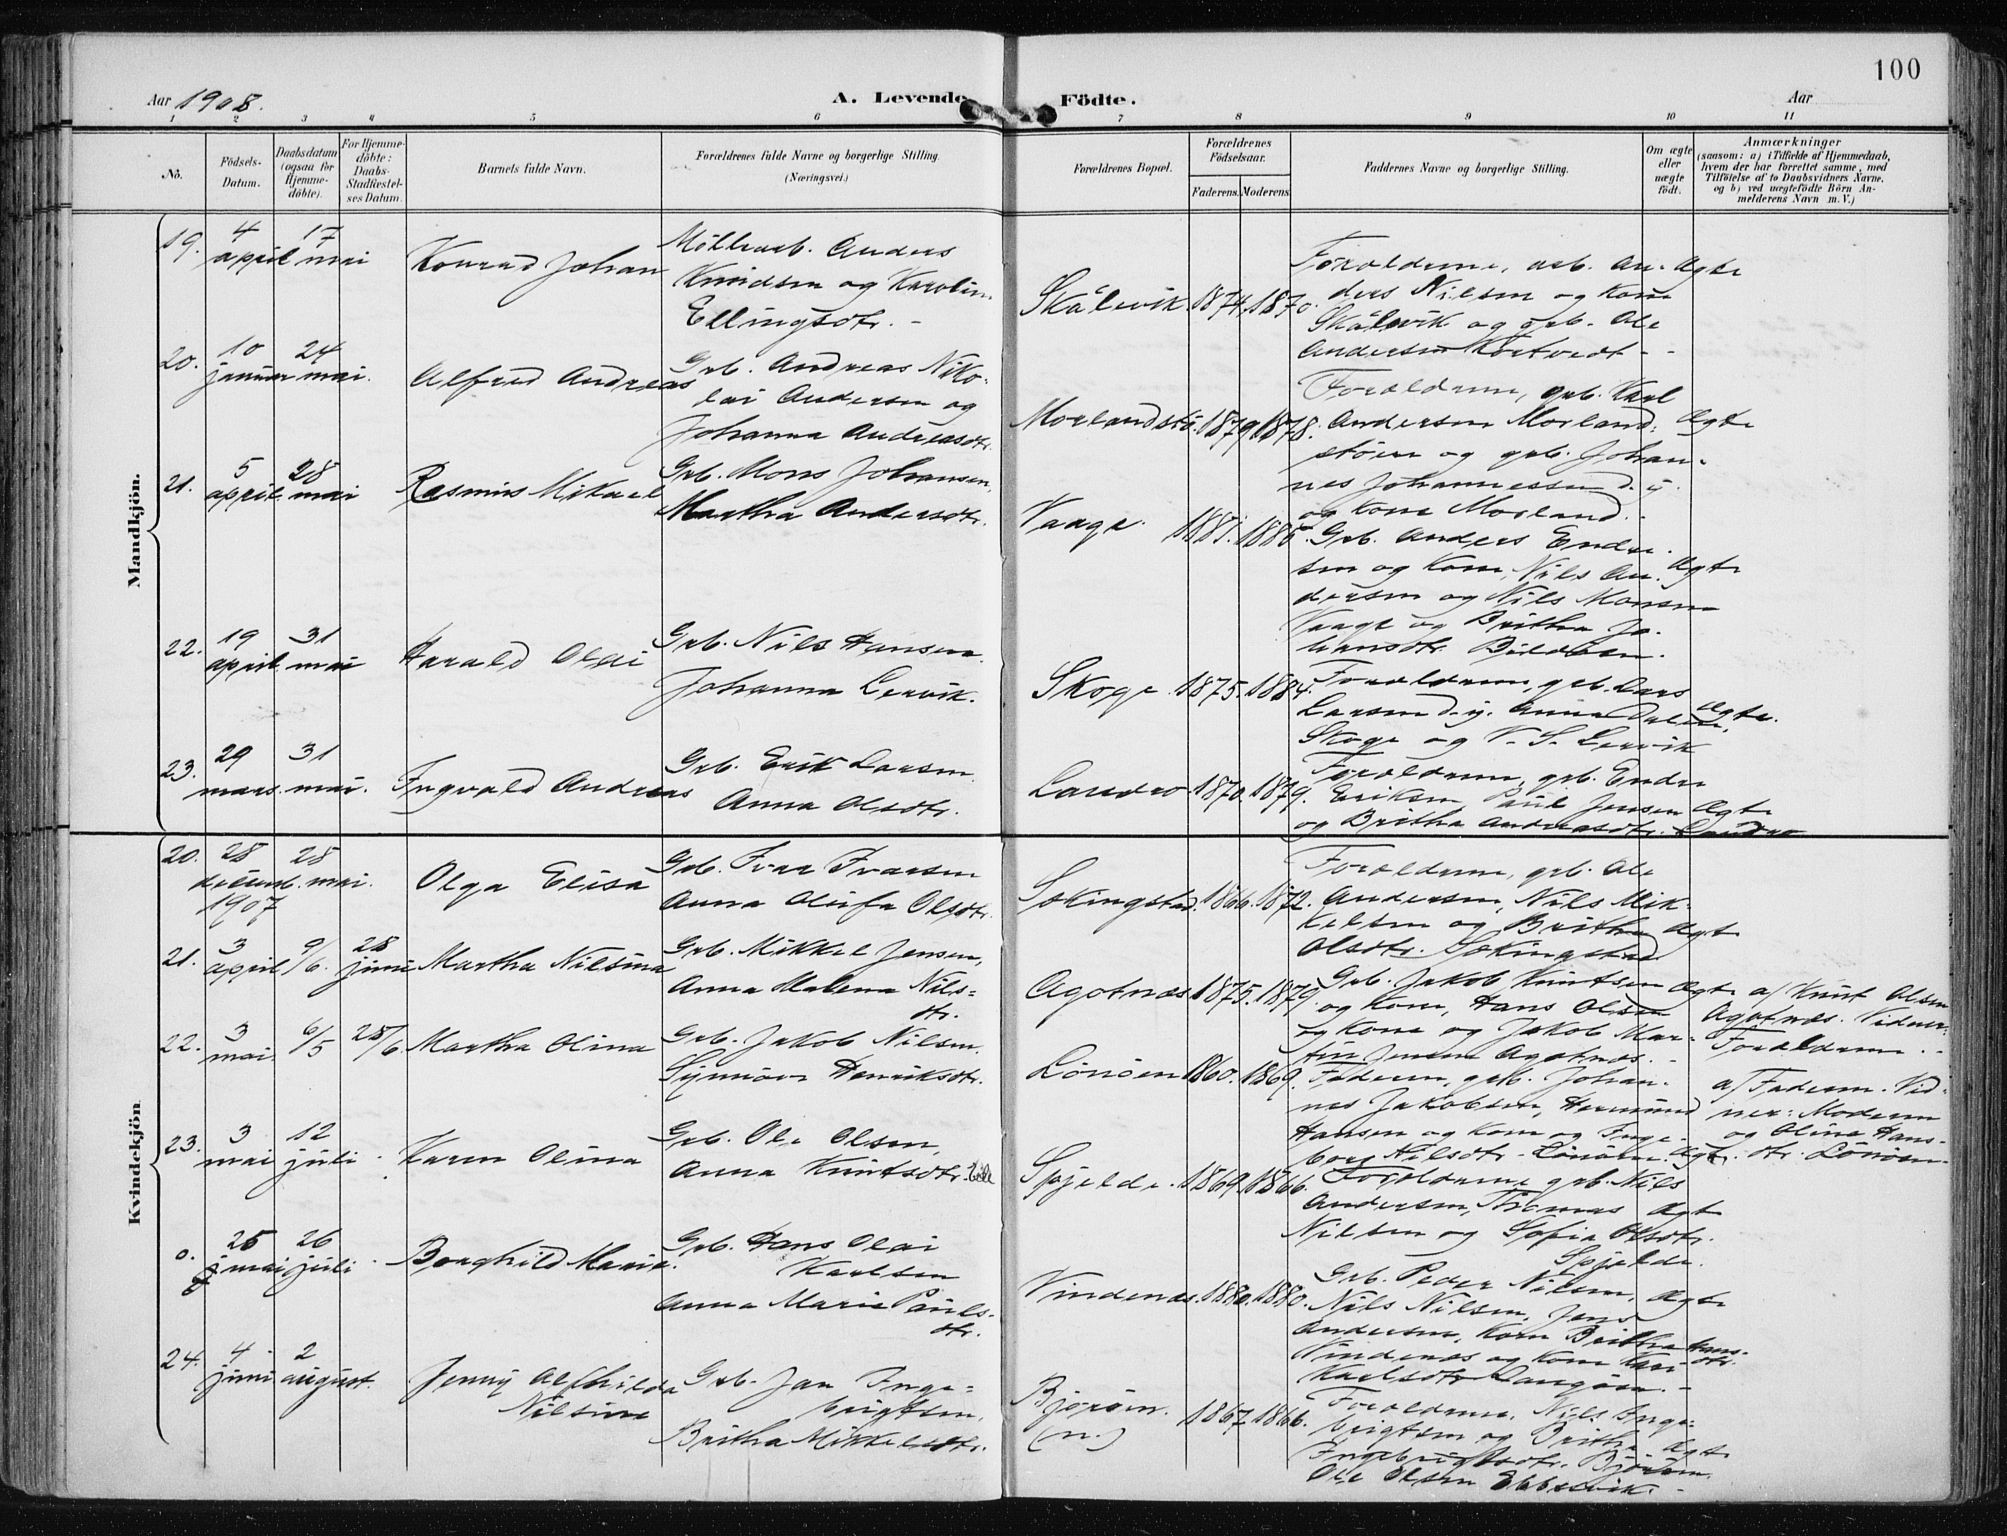 100
Aar 1908. A. Levende Födte. Aar
1 2 3 4 5 6 7 8 9 10 11
No.
Födsels-
Datum.
Daabsdatum
(ogsaa for
Hjemme-
döbte).
For Hjemme-
döbte:
Daabs-
Stadfæstel-
ses Datum.
Barnets fulde Navn.
Forældrenes fulde Navne og borgerlige Stilling.
(Næringsvei.)
Forældrenes Bopæl.
Forældrenes
Födselsaar.
Faderens. Moderens.
Faddernes Navne og borgerlige Stilling.
Om ægte
eller
uægte
födt.
Anmærkninger
(saasom: a) i Tilfælde af Hjemmedaab,
hvem der har forrettet samme, med
Tilföielse af to Daabsvidners Navne.
og b) ved uægtefödte Börn An-
melderens Navn m. V.)
Mandkjön.
19. 4 april 17 mai Konrad Johan
Anders
Knudsen og Karolin
Ellingsdtr. -
Skålevik. 1874. 1870.
Forældrene, arb. An-
ders Nilsen og kone
Skålevik og grb. Ole
Andersen
Ægte
20. 10 januar 24 mai. Alfred Andreas
Grb. Andreas Niko-
lai Andersen og
Johanna Andreasdtr.
1879 1878.
Forældrene, grb. Karl
Andersen Morland-
støen og grb. Johan-
nes Johannessen d. y.
og kone Morland. -
Ægte
21. 5 april 28 mai Rasmus Mikael
Grb. Mons Johansen,
Martha Andersdtr.
Vaage. 1881. 1886.
Grb. Anders Endre-
sen og kone, Nils An-
dersen og Nils Monsen
Vaage og Britha Jo-
hansdtr. Bildøen.
Ægte
22. 19 april 31 mai Harald Olai
Grb. Nils Hansen.
Johanna Lervik.
Skoge. 1875. 1884.
Forældrene, grb. Lars
Larsen d. y. Anna
Skoge og N. S. Lervik
Ægte.
23. 29 mars. 31 mai. Ingvald Andreas
Grb. Erik Larsen.
Anna Olsdtr.
Landro 1870. 1879.
Forældrene, grb. Endre
Eriksen, Paul Jensen
og Britha Andreasdtr. Landro
Ægte
Kvindekjön
20. 28 decemb. 1907 28 mai. Olga Elisa
Grb. Ivar Ivarsen
Anna Olufa Olsdtr.
Sekingstad. 1866. 1872.
Forældrene, grb. Ole
Andersen, Nils Mik-
kelsen og Britha
Olsdtr. Sekingstad
Ægte
21. 3 april 9/6. 28 juni Martha Nilsina
Grb. Mikkel Jensen,
Anna Malena Nils-
dtr.
Agotnæs 1875. 1879.
Grb. Jakob Knutsen
og kone, Hans Olsen
og kone og Jakob Mar-
tin Jensen Agotnæs. -
Ægte
a/ Knut Olsen
Agotnæs. Vidner:
Forældrene. -
22. 3 mai 6/5 28/6. Martha Olina
Grb. Jakob Nilsen.
Synnøve Henriksdtr.
Lønøen 1860. 1869.
Faderen, grb. Johan-
nes Jakobsen, Hermund
Hansen og kone og Inge-
borg Nilsdtr. Lønøen.
Ægte.
a/ Faderen. Vid-
ner: Moderen
og Oline Hans-
dtr. Lønøen
23. 3 mai 12 juli. Karen Olina
Grb. Ole Olsen,
Anna Knutsdtr.
Spjelde. 1869. 1866.
Forældrene grb. Nils
Andersen, Thomas
Nilsen og Sofia Olsdtr.
Spjelde.
Ægte
25 mai 26 juli. Borghild Marie.
Grb. Hans Olai
Karlsen
Anna Marie Pauls-
dtr.
Vindenæs. 1880. 1880.
Grb. Peder Nilsen,
Nils Nilsen, Jens
Andersen, kone Britha Hans-
dtr.
Vindenæs og kone Kari
Karlsdtr Langøen. -
Ægte
24. 4. juni 2 august. Jenny Alfhilda
Nilsine
Grb. Jan Inge-
brigtsen,
Britha Mikkelsdtr.
Bjørøen.
(n.)
1867. 1866.
Forældrene, Nils Inge-
brigtsen og Britha
Ingebrigtsdtr. Bjørøen
Ole Olsen Ebbesvik. -
Ægte